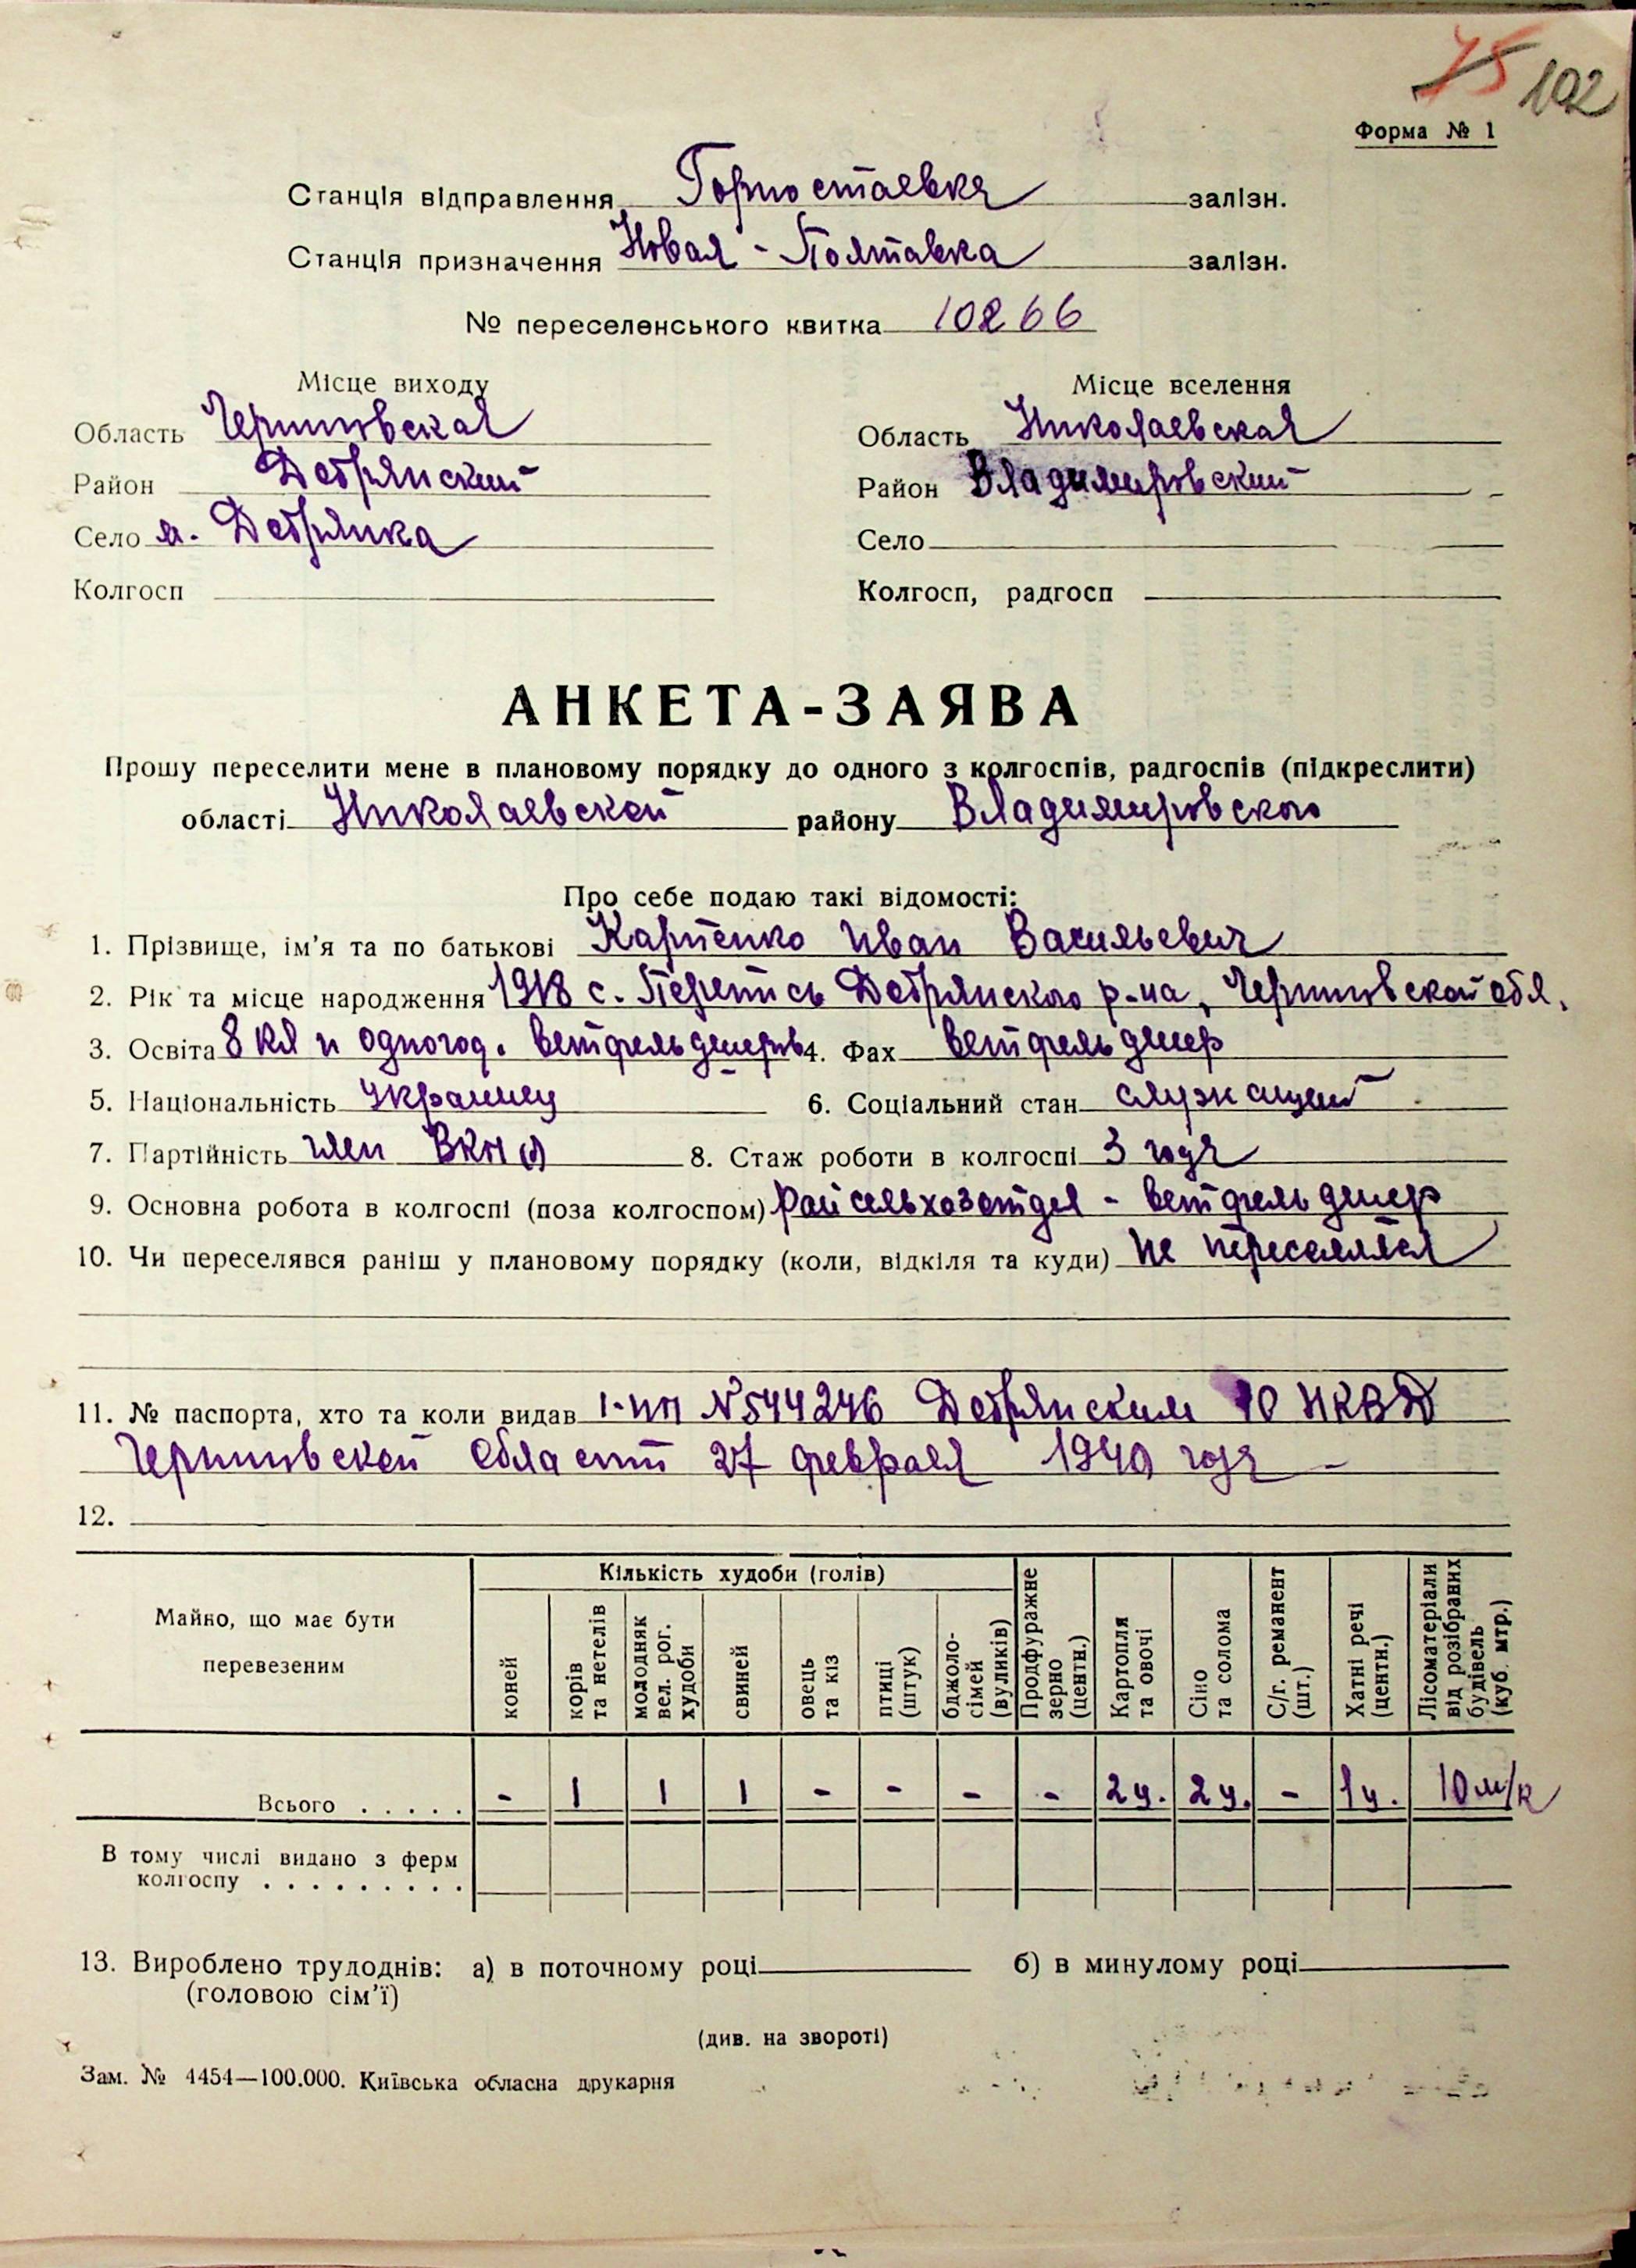 75 102
Форма № 1
Станція відправлення Горностаевка залізн.
Станція призначення Новая - Полтавка залізн.
№ переселенського квитка 10266
Місце виходу Місце вселення
Область Черниговская Область Николаевская
Район Добрянский Район Владимировский
Село м. Добрянка Село
Колгосп Колгосп, радгосп
АНКЕТА-ЗАЯВА
Прошу переселити мене в плановому порядку до одного з колгоспів, радгоспів (підкреслити)
області Николаевской району Владимировского
Про себе подаю такі відомості:
1. Прізвище, ім’я та по батькові Карпенко Иван Васильевич
2. Рік та місце народження 1918 с. Перепись Добрянского р-на, Черниговской обл.
3. Освіта 8 кл и одногод. ветфельдшеров 4. Фах ветфельдшер
5. Національність украинец 6. Соціальний стан служащий
7. Партійність член ВКП(б) 8. Стаж роботи в колгоспі 3 года
9. Основна робота в колгоспі (поза колгоспом) Райсельхозотдел - ветфельдшер
10. Чи переселявся раніш у плановому порядку (коли, відкіля та куди) не переселялся
11. № паспорта, хто та коли видав I-ЧП №544246 Добрянским РО НКВД
Черниговской области 27 февраля 1940 года -
12.
Майно, що має бути перевезеним
Кількість худоби (голів)
коней
корів та нетелів
молодняк вел. рог. худоби
свиней
овець та кіз
птиці (штук)
бджоло-сімей (вуликів)
Продфуражне зерно (центн.)
Картопля та овочі
Сіно та солома
С/г. реманент (шт.)
Хатні речі (центн.)
Лісоматеріали від розібраних будівель (куб. мтр.)
Всього . . . . . - 1 1 1 - - - - 2ц. 2ц. - 1ц. 10 м/к
В тому числі видано з ферм
колгоспу . . . . . . . . .
13. Вироблено трудоднів: а) в поточному році б) в минулому році
(головою сім’ї)
(див. на звороті)
Зам. № 4454—100.000. Київська обласна друкарня